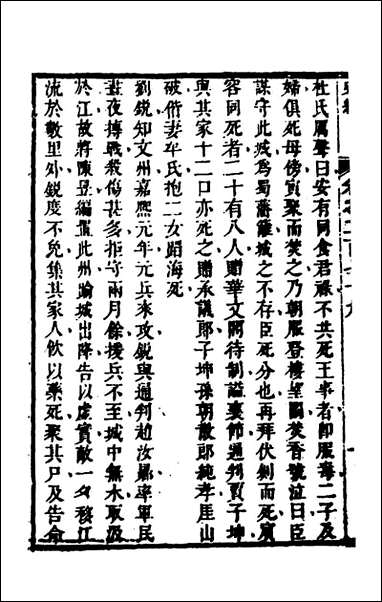 杜氏厲聲曰安有同食君祿不共死王事者卽服毒二子及
婦俱死母傍寅聚而焚之乃朝服登樓望闕焚香號泣曰臣
謀守此城爲蜀藩籬城之不存臣死分也再拜伏劍而死賓
客同死者二十有八人贈華文閣待制謚襄節通判賈子坤
與其家十二口亦死之贈承議郎子坤孫朝散郎純孝厓山
破偕妻牟氏抱二女蹈海死
劉銳知文州嘉熙元年元兵來攻銳與通判趙汝曏率軍民
晝夜搏戰殺傷甚多拒守兩月餘援兵不至城中無水取汲
於江故將陳昱編置此州踰城出降告以虛實敵一夕移江
流於數里外銳度不免集其家人飲以藥死聚其尸及告命